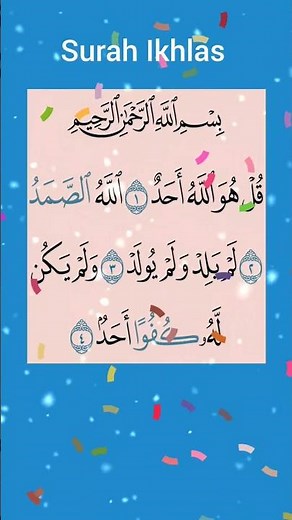 Surah Ikhlas
بِسْمِ ٱللَّهِ ٱلرَّحْمَٰنِ ٱلرَّحِيمِ
قُلْ هُوَ ٱللَّهُ أَحَدٌ ١ ٱللَّهُ ٱلصَّمَدُ
٢ لَمْ يَلِدْ وَلَمْ يُولَدْ ٣ وَلَمْ يَكُن
لَّهُۥ كُفُوًا أَحَدٌۢ ٤